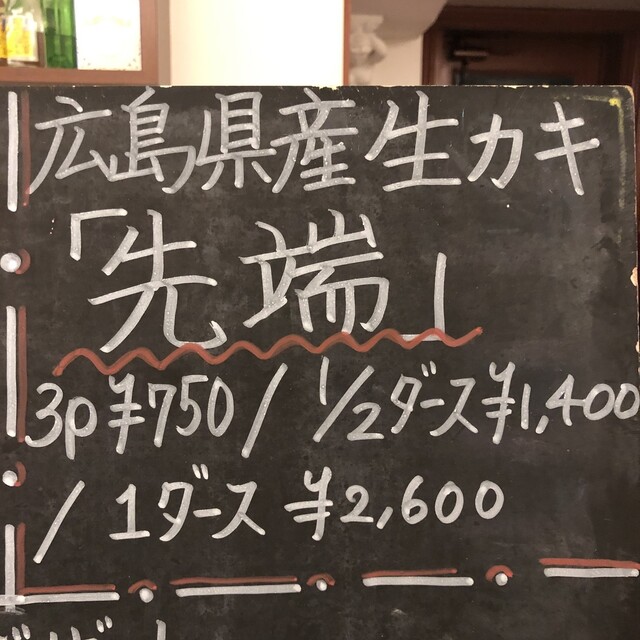 広島県産生カキ
「先端」
3p ¥750 / 1/2ダース ¥1,400
/ 1ダース ¥2,600